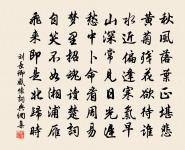 秋風落葉正堪悲
黃菊殘花欲待誰
水近偏逢寒氣早
山深常見日光遲
愁中卜命看周易
夢里招魂讀楚詞
自笑不如湘浦雁
飛來即是北歸時
劉長卿感懷詩詞典網書